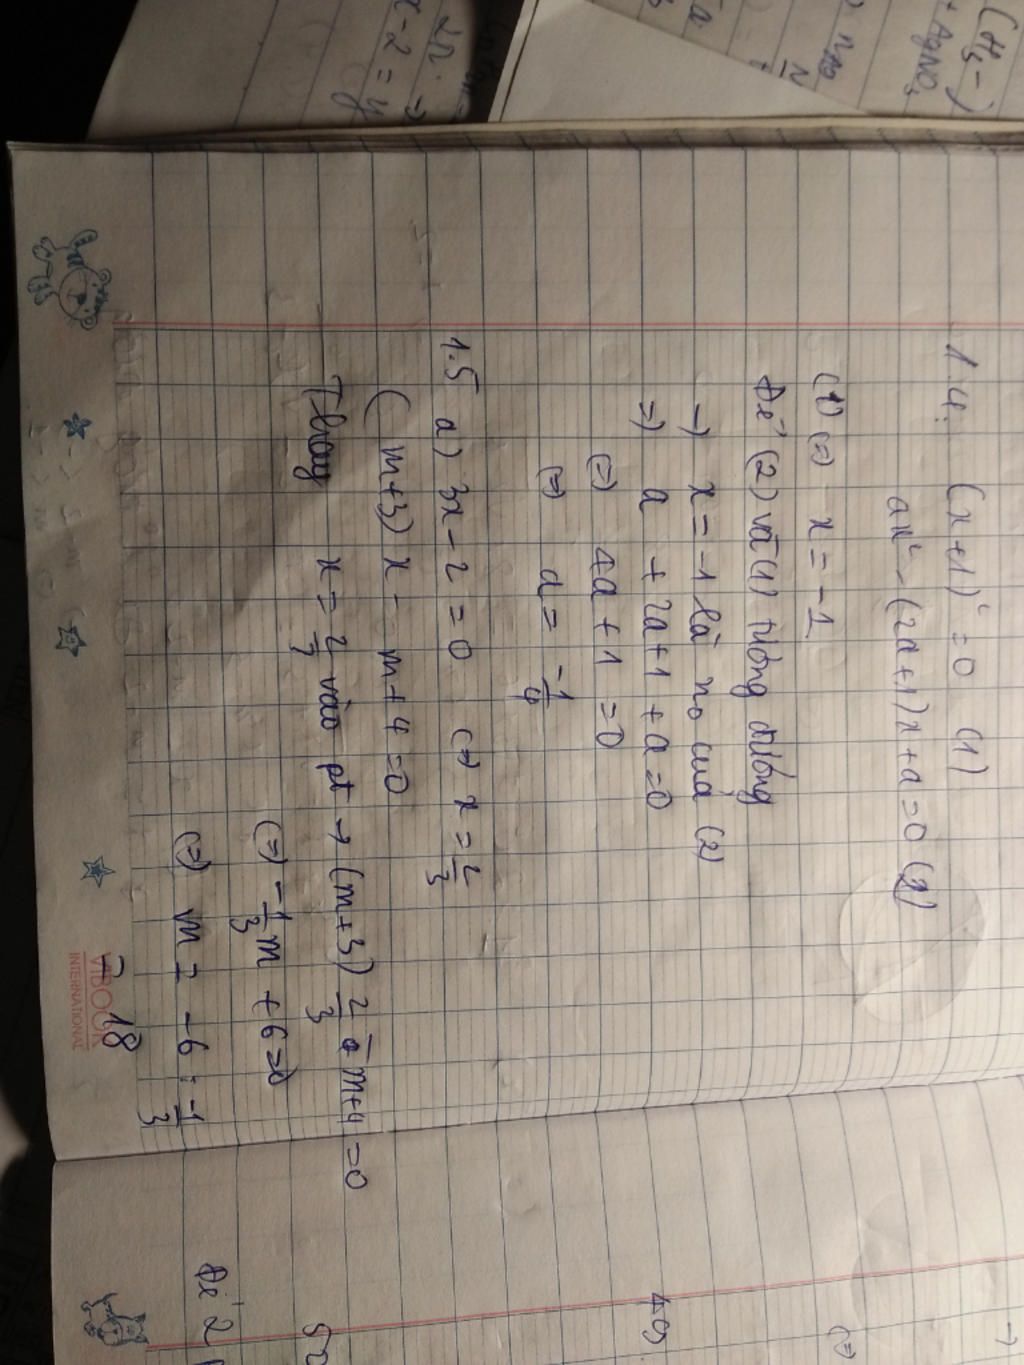 1.4. (x+1)² = 0 (1)
ax² - (2a+1)x + a = 0 (2)
(1) (=) x = -1
Để (2) và (1) tương đương
-) x = -1 là no của (2)
=) a + 2a+1 + a = 0
(=) 4a + 1 = 0
(=) a = -1/4
1.5 a) 3x - 2 = 0 (=) x = 2/3
(m+3) x - m + 4 = 0
Thay x = 2/3 vào pt → (m+3) 2/3 - m+4 = 0
(=) -1/3 m + 6 = 0
(=) m = -6 : -1/3
18
VIBOOK
INTERNATIONAL
(=)
Đề 2
(CH3-)
+ AgNO3
x-2 = y